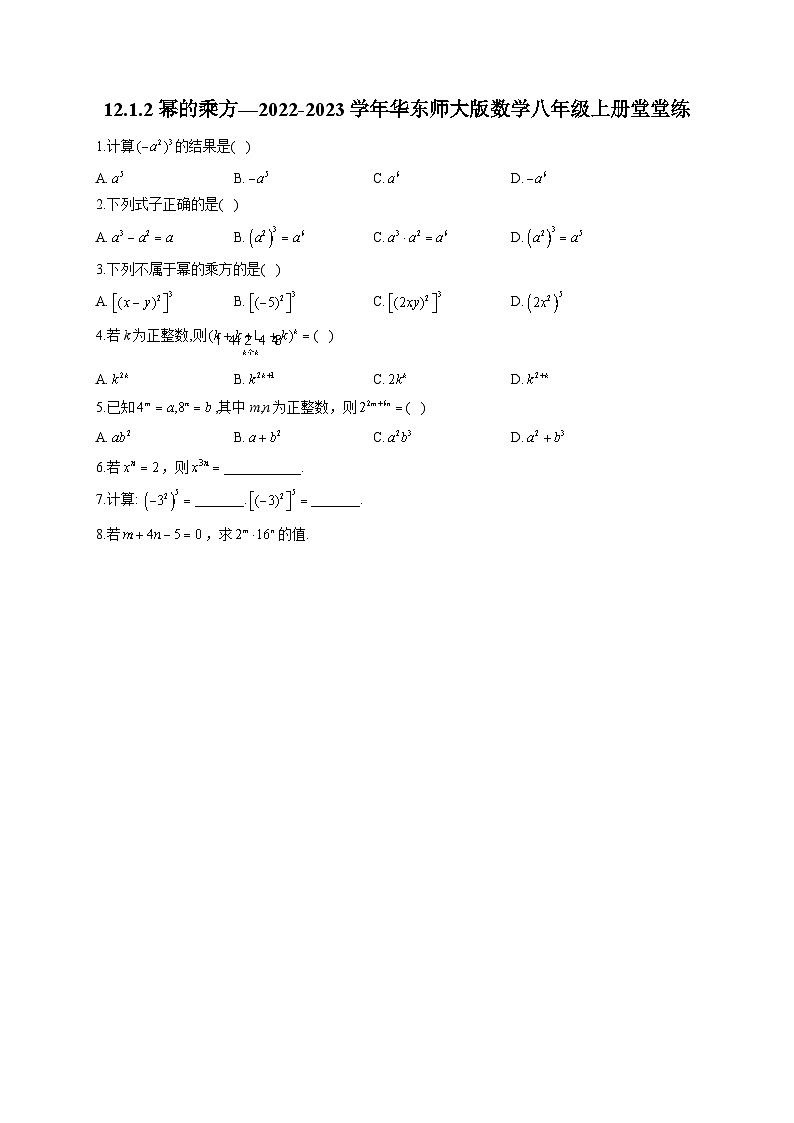 12.1.2幂的乘方—2022-2023学年华东师大版数学八年级上册堂堂练
1.计算(−a²)³的结果是(   )
A. a⁵ B. −a⁵ C. a⁶ D. −a⁶
2.下列式子正确的是(   )
A. a³ − a² = a B. (a²)³ = a⁶ C. a³ · a² = a⁶ D. (a²)³ = a⁵
3.下列不属于幂的乘方的是(   )
A. [(x − y)²]³ B. [(−5)²]³ C. [(2xy)²]³ D. (2x²)⁵
4.若k为正整数,则(k + k + + k)ᵏ = (   )
k个k
A. k²ᵏ B. k²ᵏ⁺¹ C. 2kᵏ D. k²⁺ᵏ
5.已知4ᵐ = a,8ⁿ = b,其中m,n为正整数，则2²ᵐ⁺⁶ⁿ = (   )
A. ab² B. a + b² C. a²b³ D. a² + b³
6.若xⁿ = 2，则x³ⁿ = ___________.
7.计算: (−3²)⁵ = _______. [(−3)²]⁵ = _______.
8.若m + 4n − 5 = 0，求2ᵐ · 16ⁿ的值.